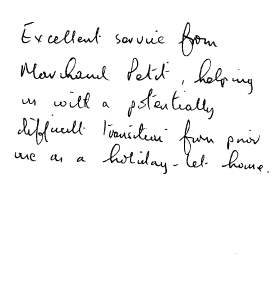 Excellent service from
Marchand Petit, helping
us with a potentially
difficult transition from prior
use as a holiday-let home.